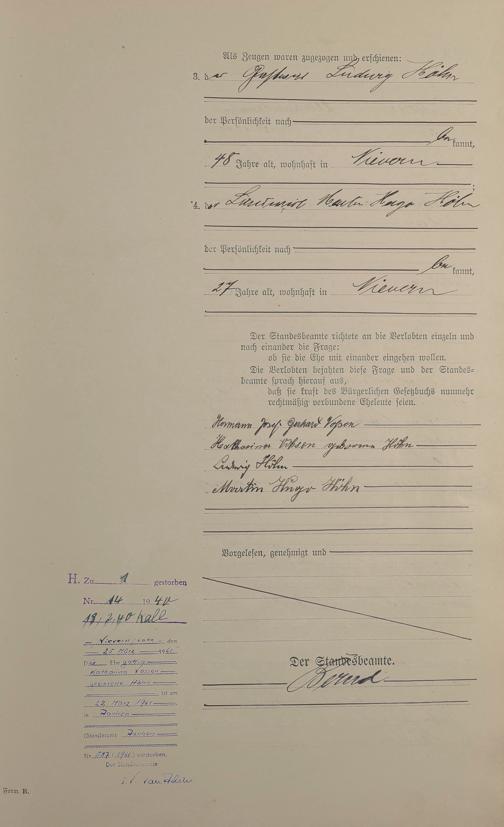 Als Zeugen waren zugezogen und erschienen:
3. der Gastwirt Ludwig Höhn
der Persönlichkeit nach
bekannt,
48 Jahre alt, wohnhaft in Nievern
4. der Landwirt Martin Hugo Höhn
der Persönlichkeit nach
bekannt,
27 Jahre alt, wohnhaft in Nievern
Der Standesbeamte richtete an die Verlobten einzeln und
nach einander die Frage:
ob sie die Ehe mit einander eingehen wollen.
Die Verlobten bejahten diese Frage und der Standes-
beamte sprach hierauf aus,
daß sie kraft des Bürgerlichen Gesetzbuchs nunmehr
rechtmäßig verbundene Eheleute seien.
Hermann Josef Gerhard Vossen
Katharina Vossen geborene Höhn
Ludwig Höhn
Martin Hugo Höhn
Vorgelesen, genehmigt und
H. Zu 1 gestorben
Nr. 14 1940
Nievern, den
25. März
Die Ehefrau
Katharina Vossen
geborene Höhn
ist am
22. März
in
Standesamt
verstorben.
Der Standesbeamte
Der Standesbeamte.
Form B.